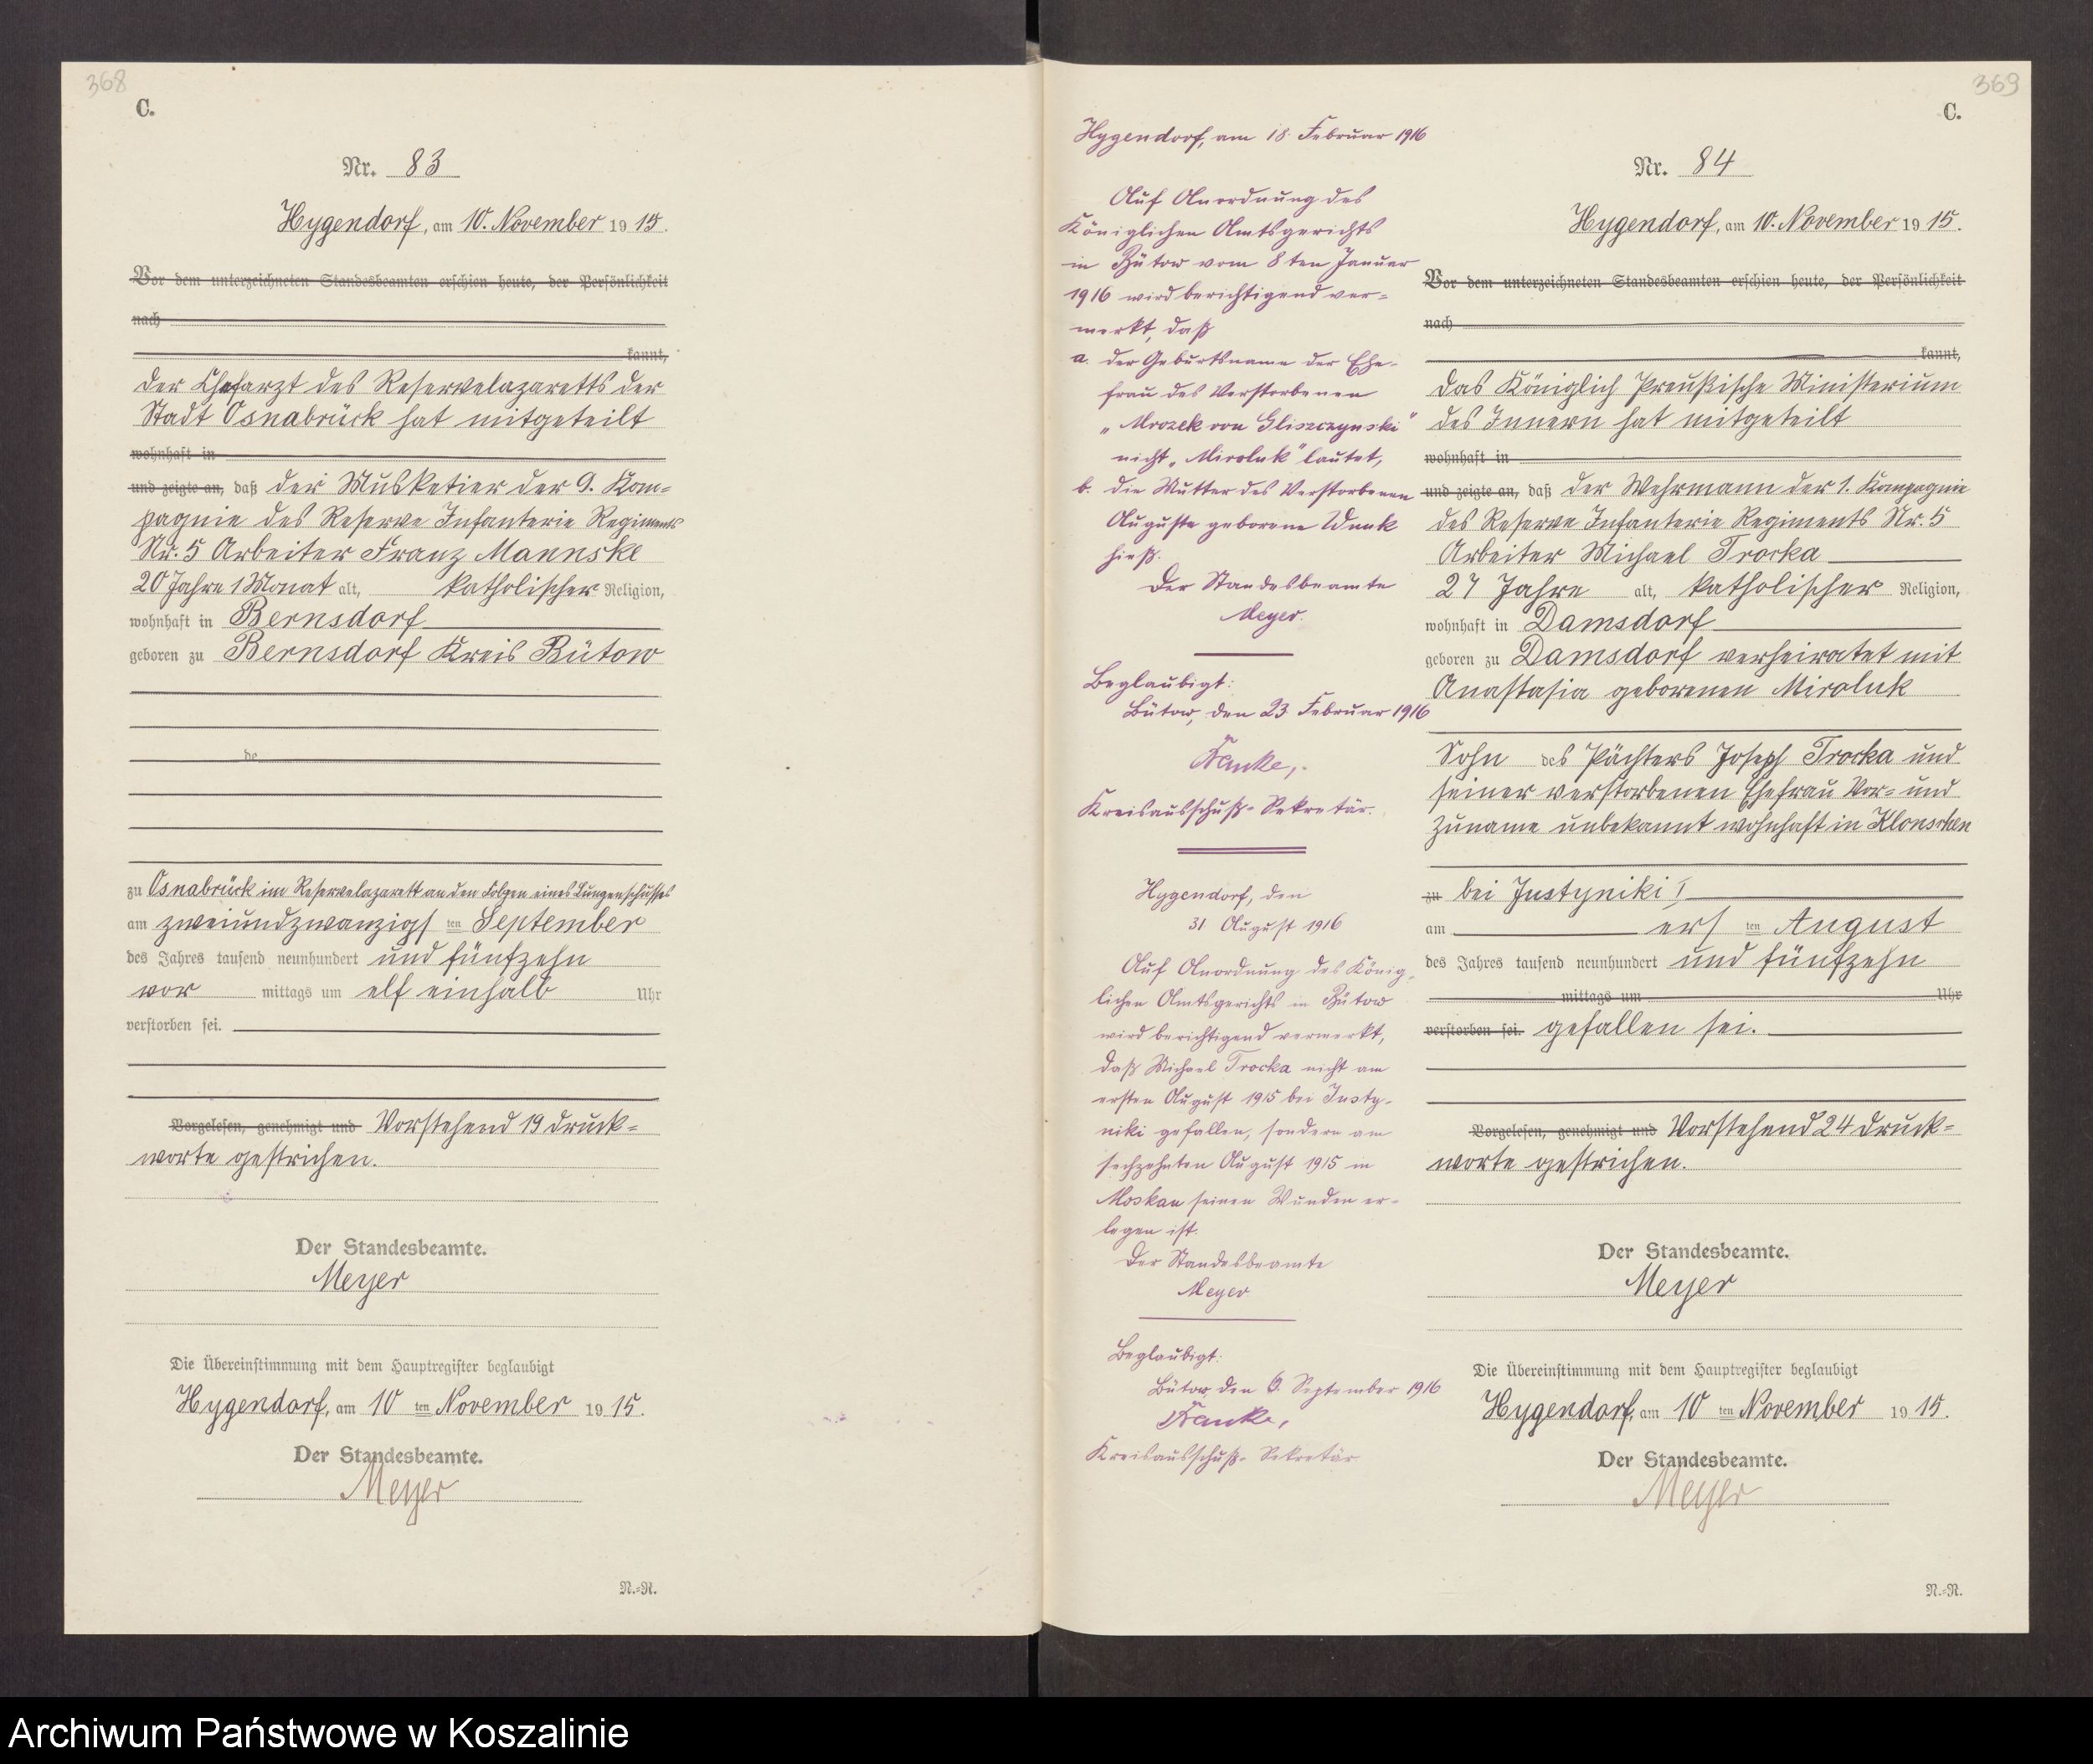 368
C.
Nr. 83
Hygendorf, am 10. November 1915.
Vor dem unterzeichneten Standesbeamten erschien heute, der Persönlichkeit
nach
kannt,
der Chefarzt des Reservelazaretts der
Stadt Osnabrück hat mitgeteilt
wohnhaft in
und zeigte an, daß der Musketier der 9. Kom-
pagnie des Reserve Infanterie Regiments
Nr. 5 Arbeiter Franz Mannske
20 Jahre 1 Monat alt, katholischer Religion,
wohnhaft in Bernsdorf
geboren zu Bernsdorf Kreis Bütow
de
zu Osnabrück im Reservelazarett an den Folgen eines Lungenschusses
am zweiundzwanzigsten September
des Jahres tausend neunhundert und fünfzehn
vor mittags um elf einhalb Uhr
verstorben sei.
Vorgelesen, genehmigt und Vorstehend 19 Druck-
worte gestrichen.
Der Standesbeamte.
Meyer
Die Übereinstimmung mit dem Hauptregister beglaubigt
Hygendorf, am 10 ten November 1915.
Der Standesbeamte.
Meyer
N.-R.
369
C.
Hygendorf, am 18. Februar 1916
Auf Anordnung des
Königlichen Amtsgerichts
in Bütow vom 8ten Januar
1916 wird berichtigend ver-
merkt, daß
a. der Geburtsname der Ehe-
frau des Verstorbenen
„Mrozek von Gliszczynski"
nicht „Miroluk" lautet,
b. die Mutter des Verstorbenen
Auguste geborene Wnuk
hieß.
Der Standesbeamte
Meyer.
Beglaubigt:
Bütow, den 23 Februar 1916
Kreisausschuß-Sekretär.
Hygendorf, den
31. August 1916
Auf Anordnung des König-
lichen Amtsgerichts in Bütow
wird berichtigend vermerkt,
daß Michael Trocka nicht am
ersten August 1915 bei Justy-
niki gefallen, sondern am
sechzehnten August 1915 in
Moskau seinen Wunden er-
legen ist.
Der Standesbeamte
Meyer
Beglaubigt:
Bütow den 6. September 1916
Kreisausschuß-Sekretär
Nr. 84
Hygendorf, am 10. November 1915.
Vor dem unterzeichneten Standesbeamten erschien heute, der Persönlichkeit
nach
kannt,
das Königlich Preußische Ministerium
des Innern hat mitgeteilt
wohnhaft in
und zeigte an, daß der Wehrmann der 1. Kompagnie
des Reserve Infanterie Regiments Nr. 5
Arbeiter Michael Trocka
27 Jahre alt, katholischer Religion,
wohnhaft in Damsdorf
geboren zu Damsdorf verheiratet mit
Anastasia geborenen Miroluk
Sohn des Pächters Joseph Trocka und
seiner verstorbenen Ehefrau Vor- und
Zuname unbekannt wohnhaft in Klonschen
zu bei Justyniki
am ersten August
des Jahres tausend neunhundert und fünfzehn
mittags um Uhr
verstorben sei. gefallen sei.
Vorgelesen, genehmigt und Vorstehend 24 Druck-
worte gestrichen.
Der Standesbeamte.
Meyer
Die Übereinstimmung mit dem Hauptregister beglaubigt
Hygendorf, am 10 ten November 1915.
Der Standesbeamte.
Meyer
N.-R.
Archiwum Państwowe w Koszalinie